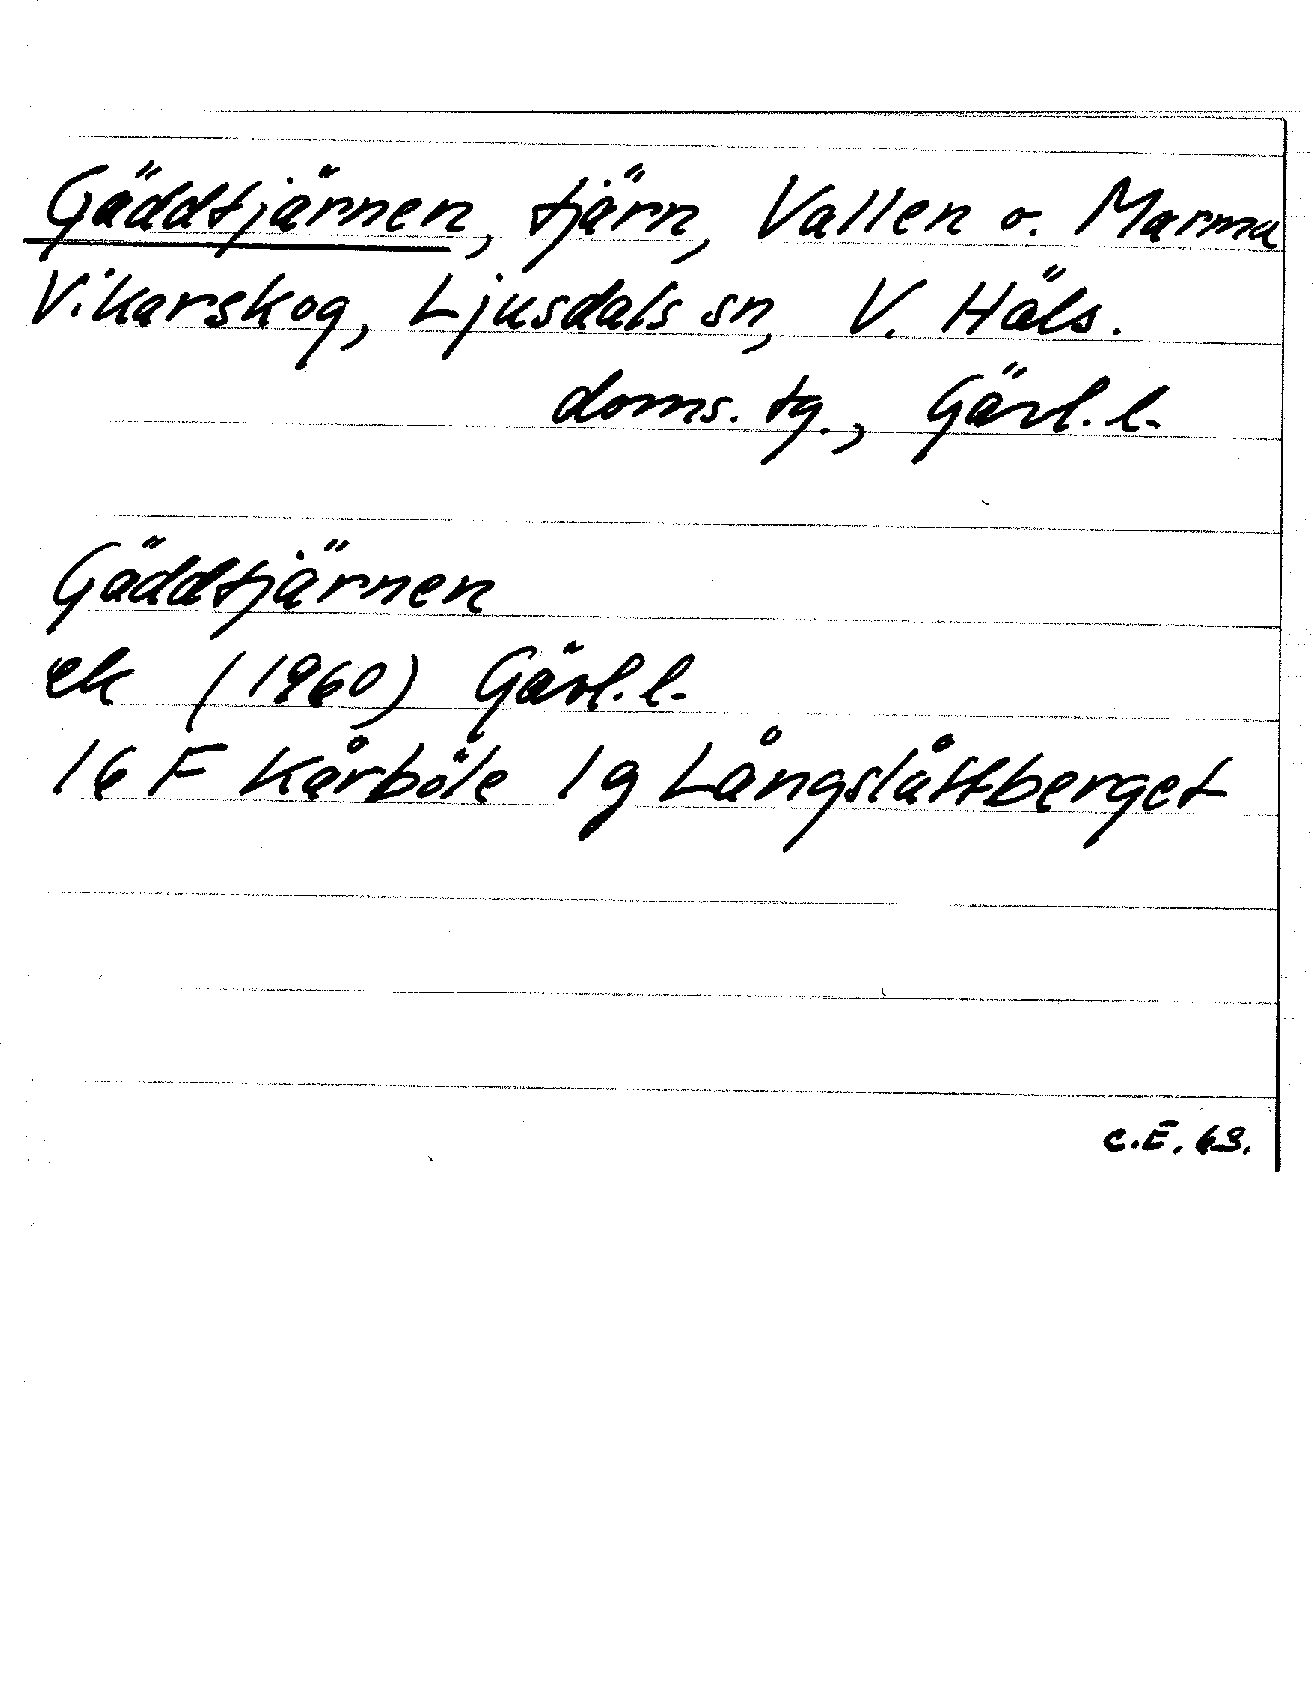 Gäddtjärnen, tjärn, Vallen o. Marma
Vikarskog, Ljusdals sn, V. Häls.
doms. tg., Gävl. l.
Gäddtjärnen
ek (1960) Gävl. l.
16 F Kårböle 1g Långslåttberget
C.E. 63.